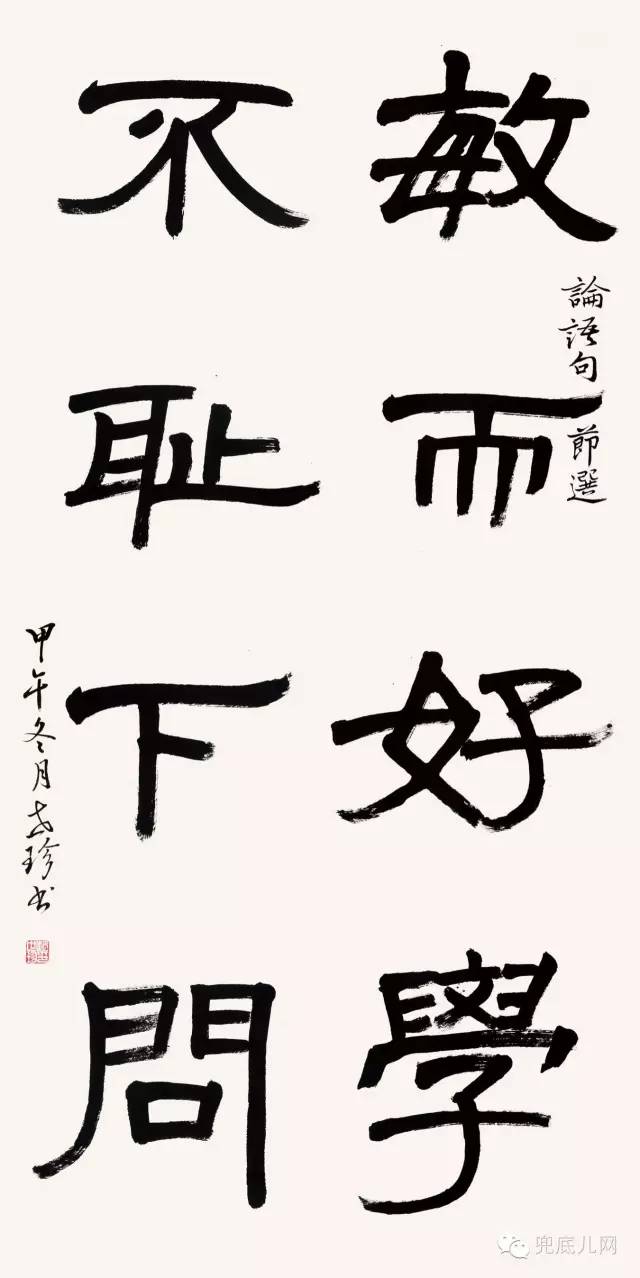 敏而好學
論語句 節選
不耻下問
甲午冬月世珍书
兜底儿网